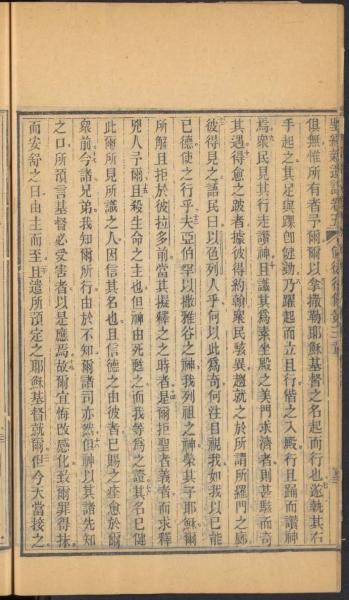 俱無惟所有者予爾爾以拿撒勒耶穌基督之名起而行也遂執其右
手起之其足與踝卽健勁乃躍起而立且行偕之入殿行且踊而讚神
焉衆民見其行走讚神且識其爲素坐殿之美門求濟者則甚駭而奇
其遇得愈之跛者據彼得約翰衆民駭異趨就之於所謂所羅門之廊
彼得見之語民曰以色列人乎何以此爲奇何注目視我如我以己能
已德使之行乎夫亞伯罕以撒雅谷之神我列祖之神榮其子耶穌爾
所解且拒於彼拉多前當其擬釋之之時者是爾拒聖者義者而求釋
兇人予爾且殺生命之主也但神由死甦之而我等爲之證其名已健
此爾所見所識之人因信其名也且信德之由彼者已賜之痊愈於爾
衆前今諸兄弟我知爾所行由於不知爾諸司亦然但神以其諸先知
之口所預言基督必受害者以是應焉故爾宜悔改感化致爾罪得抹
而安舒之日由主而至且遣所預定之耶穌基督就爾但今天當接之